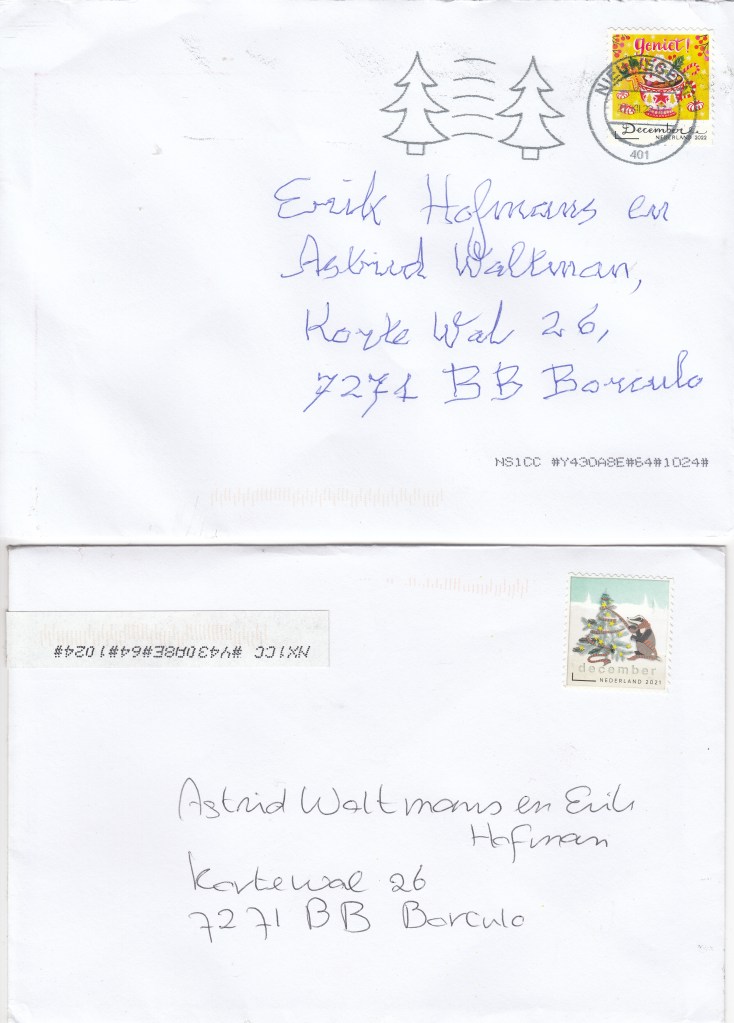 geniet!
NIEUWEGE
December
NEDERLAND 2022
401
Erik Hofmans en
Astrid Waltman,
Korte Wal 26,
7271 BB Borculo
NS1CC #Y430A8E#64#1024#
NX1CC #Y430A8E#64#1024#
december
NEDERLAND 2021
Astrid Waltmans en Erik
Hofman
Kortewal 26
7271 BB Borculo